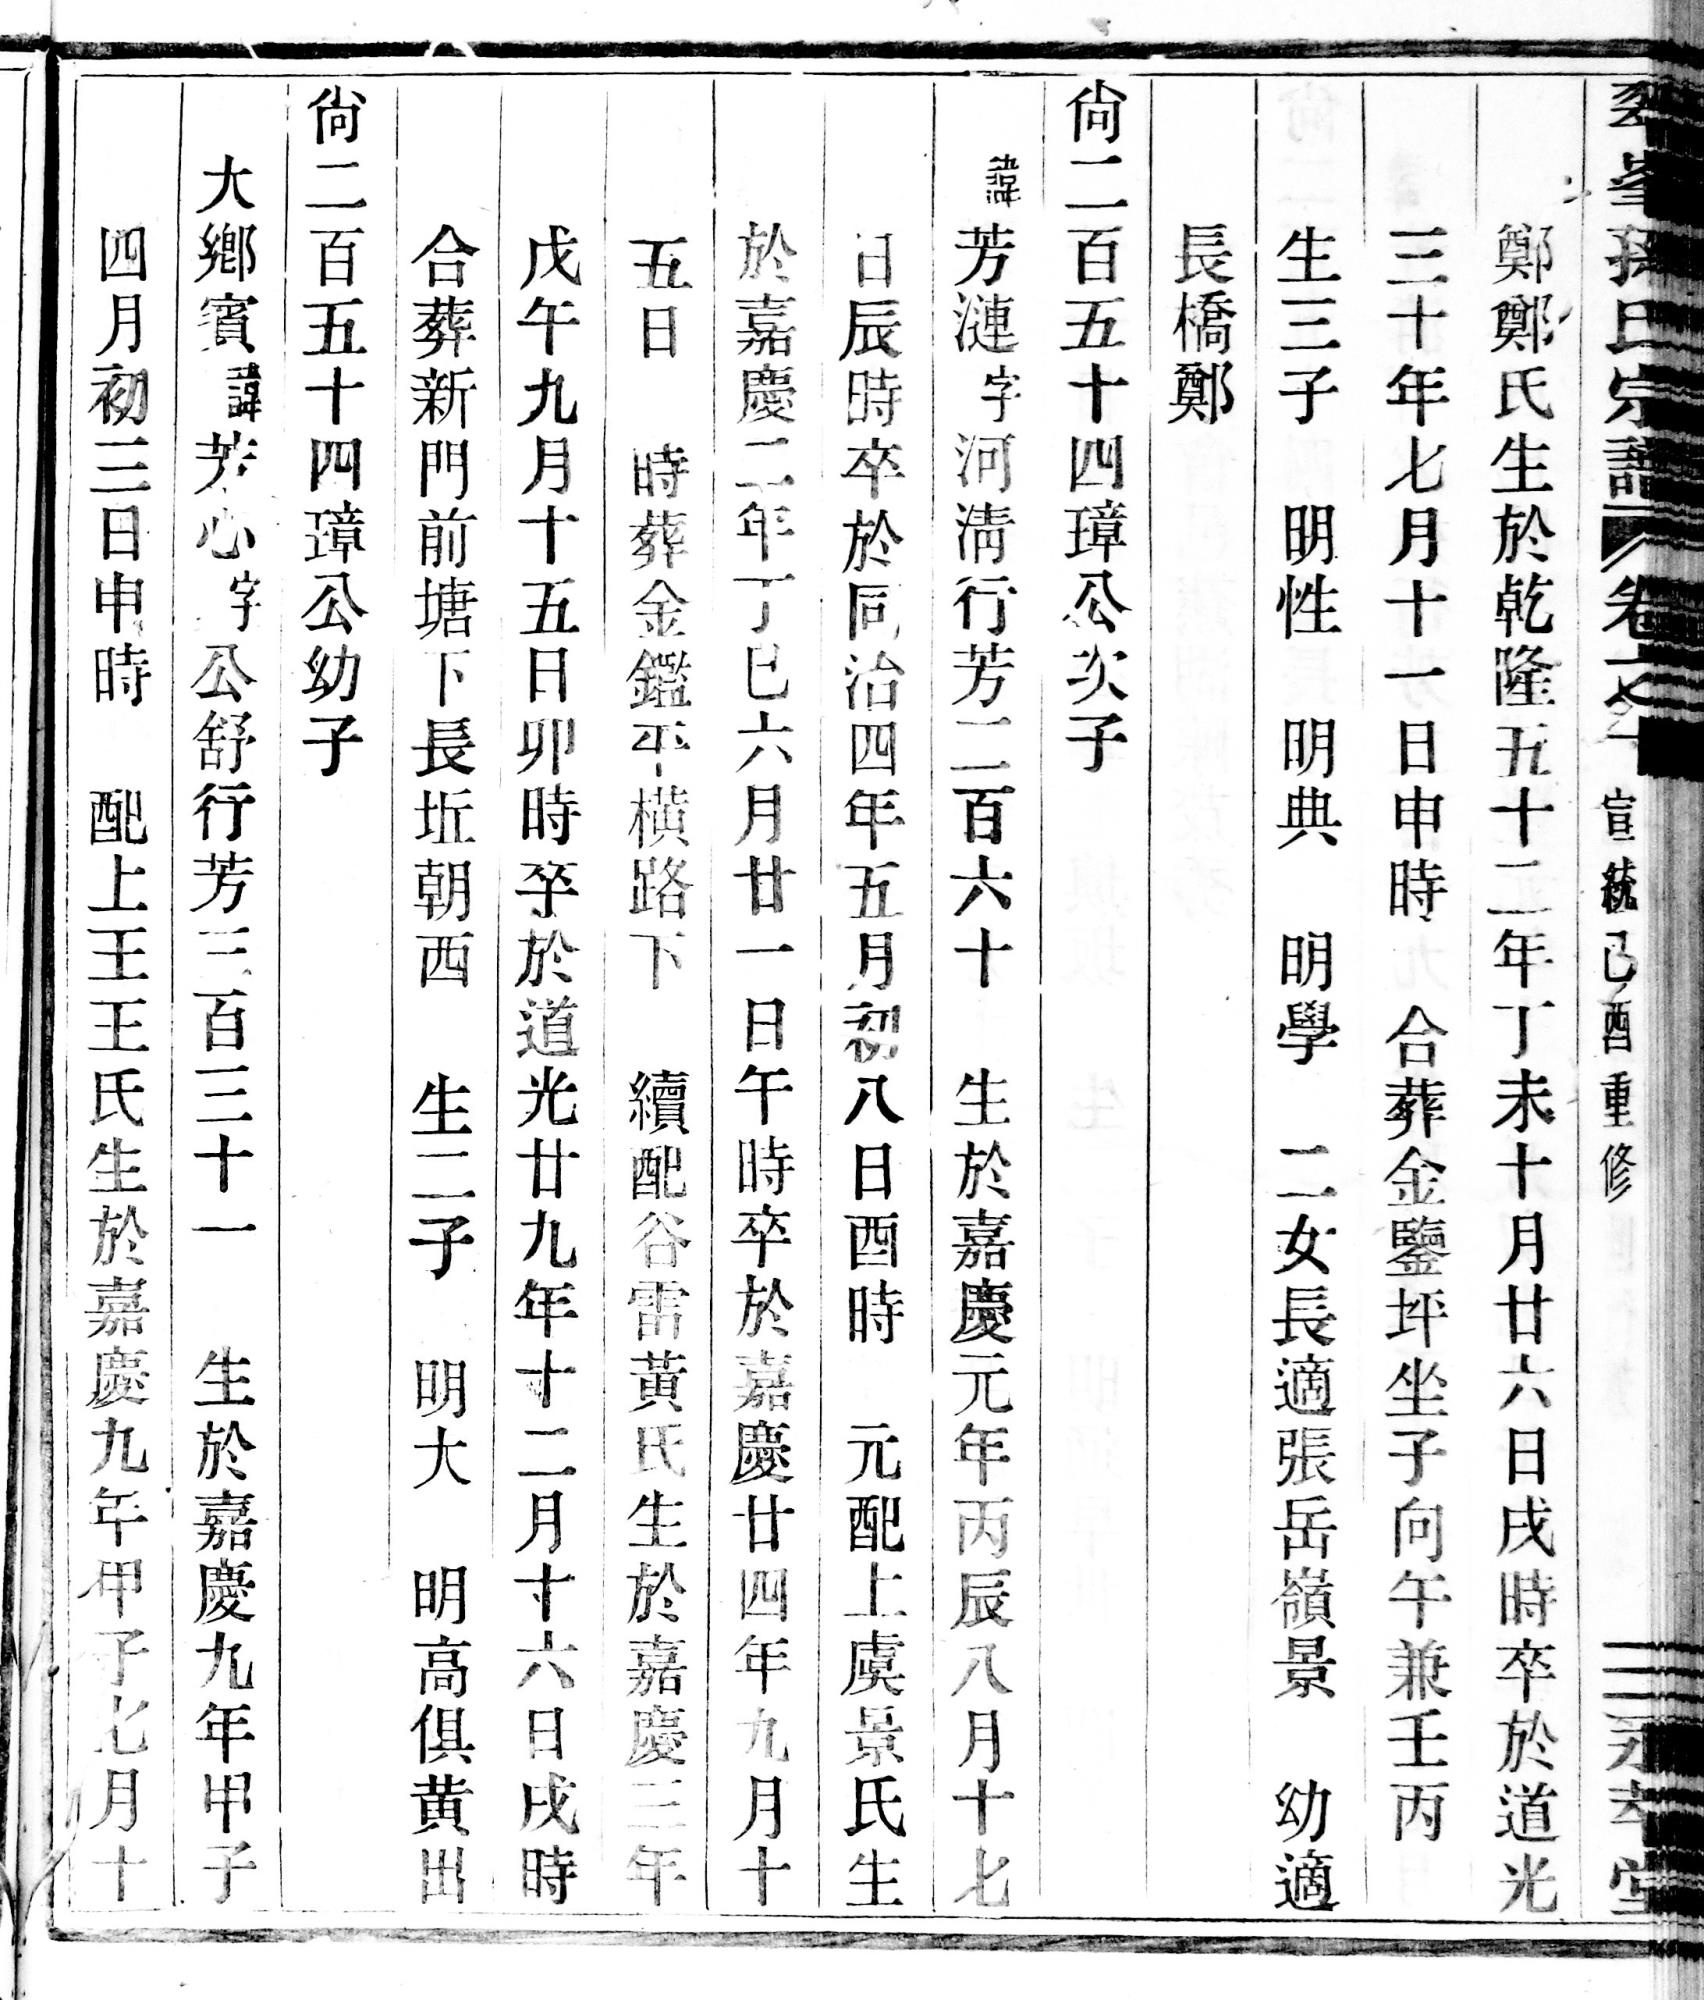 孫氏宗譜 卷之 宣統己酉重修 永孝堂
鄭鄭氏生於乾隆五十二年丁未十月廿六日戌時卒於道光
三十年七月十一日申時 合葬金鑒坪坐子向午兼壬丙
生三子 明性 明典 明學 二女長適張岳嶺景 幼適
長橋鄭
尙二百五十四璋公次子
諱芳漣字河淸行芳二百六十 生於嘉慶元年丙辰八月十七
日辰時卒於同治四年五月初八日酉時 元配上虞景氏生
於嘉慶二年丁巳六月廿一日午時卒於嘉慶廿四年九月十
五日 時葬金鑑平橫路下 續配谷雷黃氏生於嘉慶三年
戊午九月十五日卯時卒於道光廿九年十二月十六日戌時
合葬新門前塘下長坵朝西 生二子 明大 明高俱黄出
尙二百五十四璋公幼子
大鄉賓諱芳心字公舒行芳三百三十一 生於嘉慶九年甲子
四月初三日申時 配上王王氏生於嘉慶九年甲子七月十